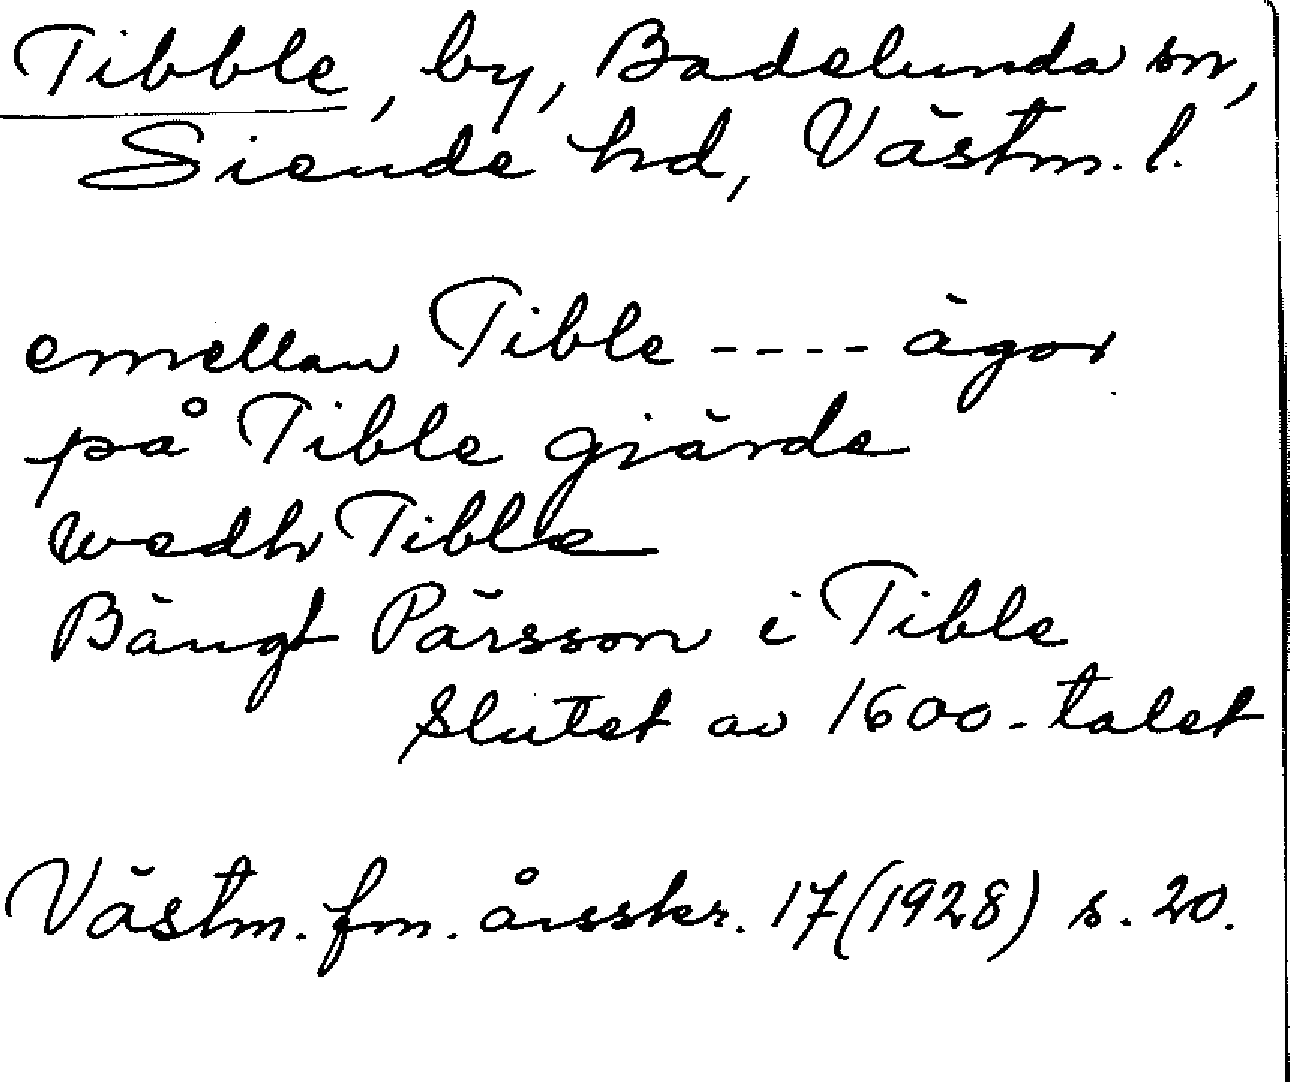 Tibble, by, Badelunda sn,
Siende hd, Västm. l.
emellan Tible ---- ägor
på Tible giärde
wedh Tible
Bängt Pärsson i Tible
Slutet av 1600-talet
Västm. fm. årsskr. 17(1928) s. 20.